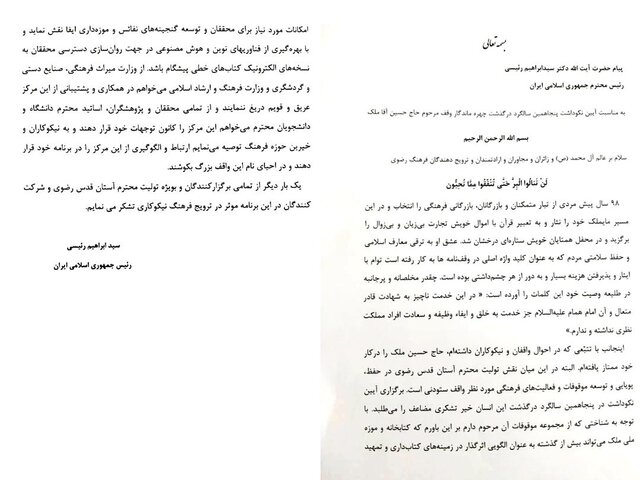 بسمه تعالی
پیام حضرت آیت الله دکتر سیدابراهیم رئیسی
رئیس محترم جمهوری اسلامی ایران
به مناسبت آیین نکوداشت پنجاهمین سالگرد درگذشت چهره ماندگار وقف مرحوم حاج حسین آقا ملک
بسم الله الرحمن الرحیم
سلام بر عالم آل محمد (ص) و زائران و مجاوران و ارادتمندان و ترویج دهندگان فرهنگ رضوی
لَنْ تَنَالُوا الْبِرَّ حَتَّى تُنْفِقُوا مِمَّا تُحِبُّونَ
۹۸ سال پیش مردی از تبار متمکنان و بازرگانان، بازرگانی فرهنگی را انتخاب و در این
مسیر مایملک خود را نثار و به تعبیر قرآن با اموال خویش تجارت بی‌زیان و بی‌زوال را
برگزید و در محفل همتایان خویش ستاره‌ای درخشان شد. عشق او به ترقی معارف اسلامی
و حفظ سلامتی مردم که به عنوان کلید واژه اصلی در وقف‌نامه ها به کار رفته است توام با
ایثار و پذیرفتن هزینه بسیار و به دور از هر چشم‌داشتی بوده است. چقدر مخلصانه و پرجانبه
در طلیعه وصیت خود این کلمات را آورده است: « در این خدمت ناچیز به شهادت قادر
متعال و آن امام همام علیه‌السلام جز خدمت به خلق و ایفاء وظیفه و سعادت افراد مملکت
نظری نداشته و ندارم.»
اینجانب با تتبّعی که در احوال واقفان و نیکوکاران داشته‌ام، حاج حسین ملک را درکار
خود ممتاز یافته‌ام. البته در این میان نقش تولیت محترم آستان قدس رضوی در حفظ،
پویایی و توسعه موقوفات و فعالیت‌های فرهنگی مورد نظر واقف ستودنی است. برگزاری آیین
نکوداشت در پنجاهمین سالگرد درگذشت این انسان خیر تشکری مضاعف را می‌طلبد. با
توجه به شناختی که از مجموعه موقوفات آن مرحوم دارم بر این باورم که کتابخانه و موزه
ملی ملک می‌تواند بیش از گذشته به عنوان الگویی اثرگذار در زمینه‌های کتاب‌داری و تمهید
امکانات مورد نیاز برای محققان و توسعه گنجینه‌های نفائس و موزه‌داری ایفا نقش نماید و
با بهره‌گیری از فناوریهای نوین و هوش مصنوعی در جهت روان‌سازی دسترسی محققان به
نسخه‌های الکترونیک کتاب‌های خطی پیشگام باشد. از وزارت میراث فرهنگی، صنایع دستی
و گردشگری و وزارت فرهنگ و ارشاد اسلامی می‌خواهم در همکاری و پشتیبانی از این مرکز
عریق و قویم دریغ ننمایند و از تمامی محققان و پژوهشگران، اساتید محترم دانشگاه و
دانشجویان محترم می‌خواهم این مرکز را کانون توجهات خود قرار دهند و به نیکوکاران و
خیرین حوزه فرهنگ توصیه می‌نمایم ارتباط و الگوگیری از این مرکز را در برنامه خود قرار
دهند و در احیای نام این واقف بزرگ بکوشند.
یک بار دیگر از تمامی برگزارکنندگان و بویژه تولیت محترم آستان قدس رضوی و شرکت
کنندگان در این برنامه موثر در ترویج فرهنگ نیکوکاری تشکر می نمایم.
سید ابراهیم رئیسی
رئیس جمهوری اسلامی ایران